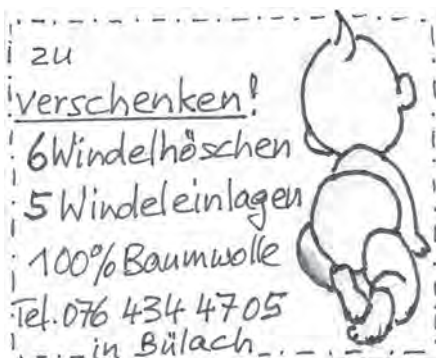 zu
verschenken!
6 Windelhöschen
5 Windeleinlagen
100% Baumwolle
Tel. 076 434 4705
in Bülach